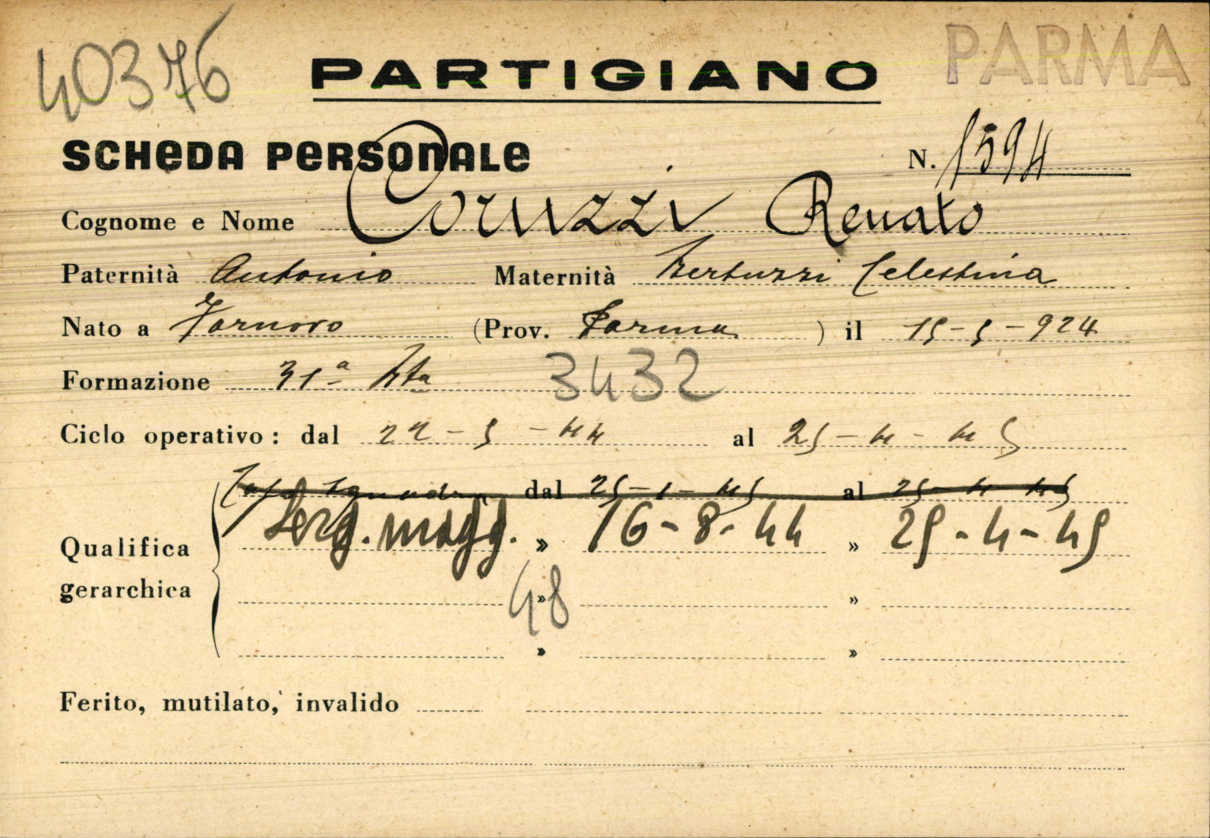 40376 PARTIGIANO PARMA
SCHEDA PERSONALE N. 1594
Cognome e Nome Coruzzi Renato
Paternità Antonio Maternità Bertuzzi Celestina
Nato a Fornovo (Prov. Parma) il 15-5-924
Formazione 31ª Bta 3432
Ciclo operativo: dal 22-5-44 al 25-4-45
Capo Squadra dal 25-1-45 al 25-4-45
Serg. magg. » 16-8-44 » 25-4-45
Qualifica
gerarchica 48 » »
» »
Ferito, mutilato, invalido